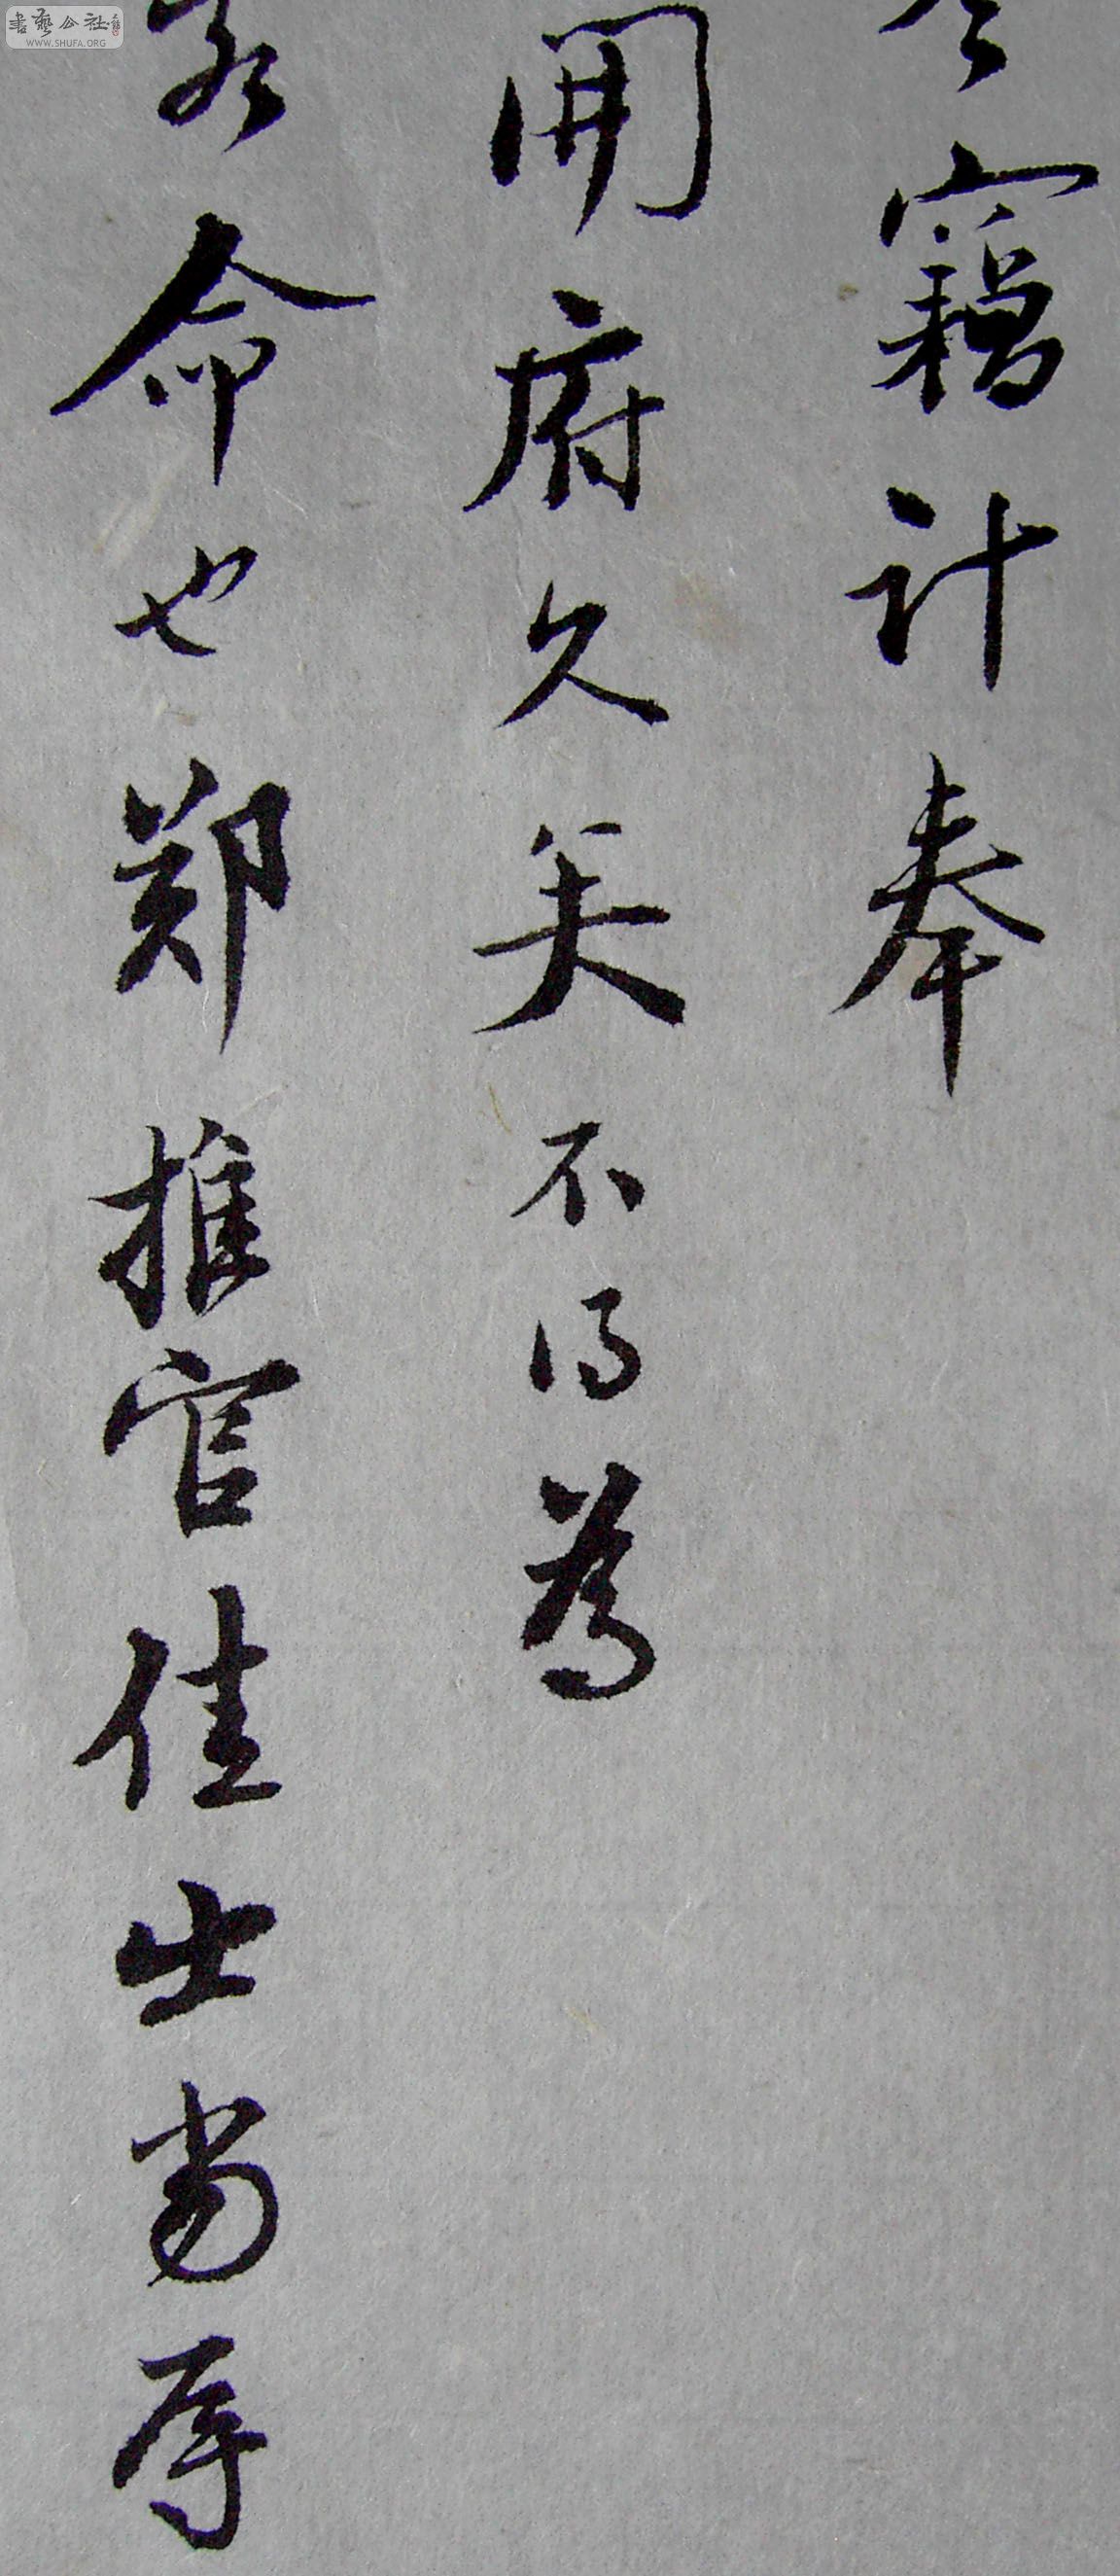 竊計奉
開府久矣不得為
命也鄭推官佳士當厚
書藝公社
WWW.SHUFA.ORG